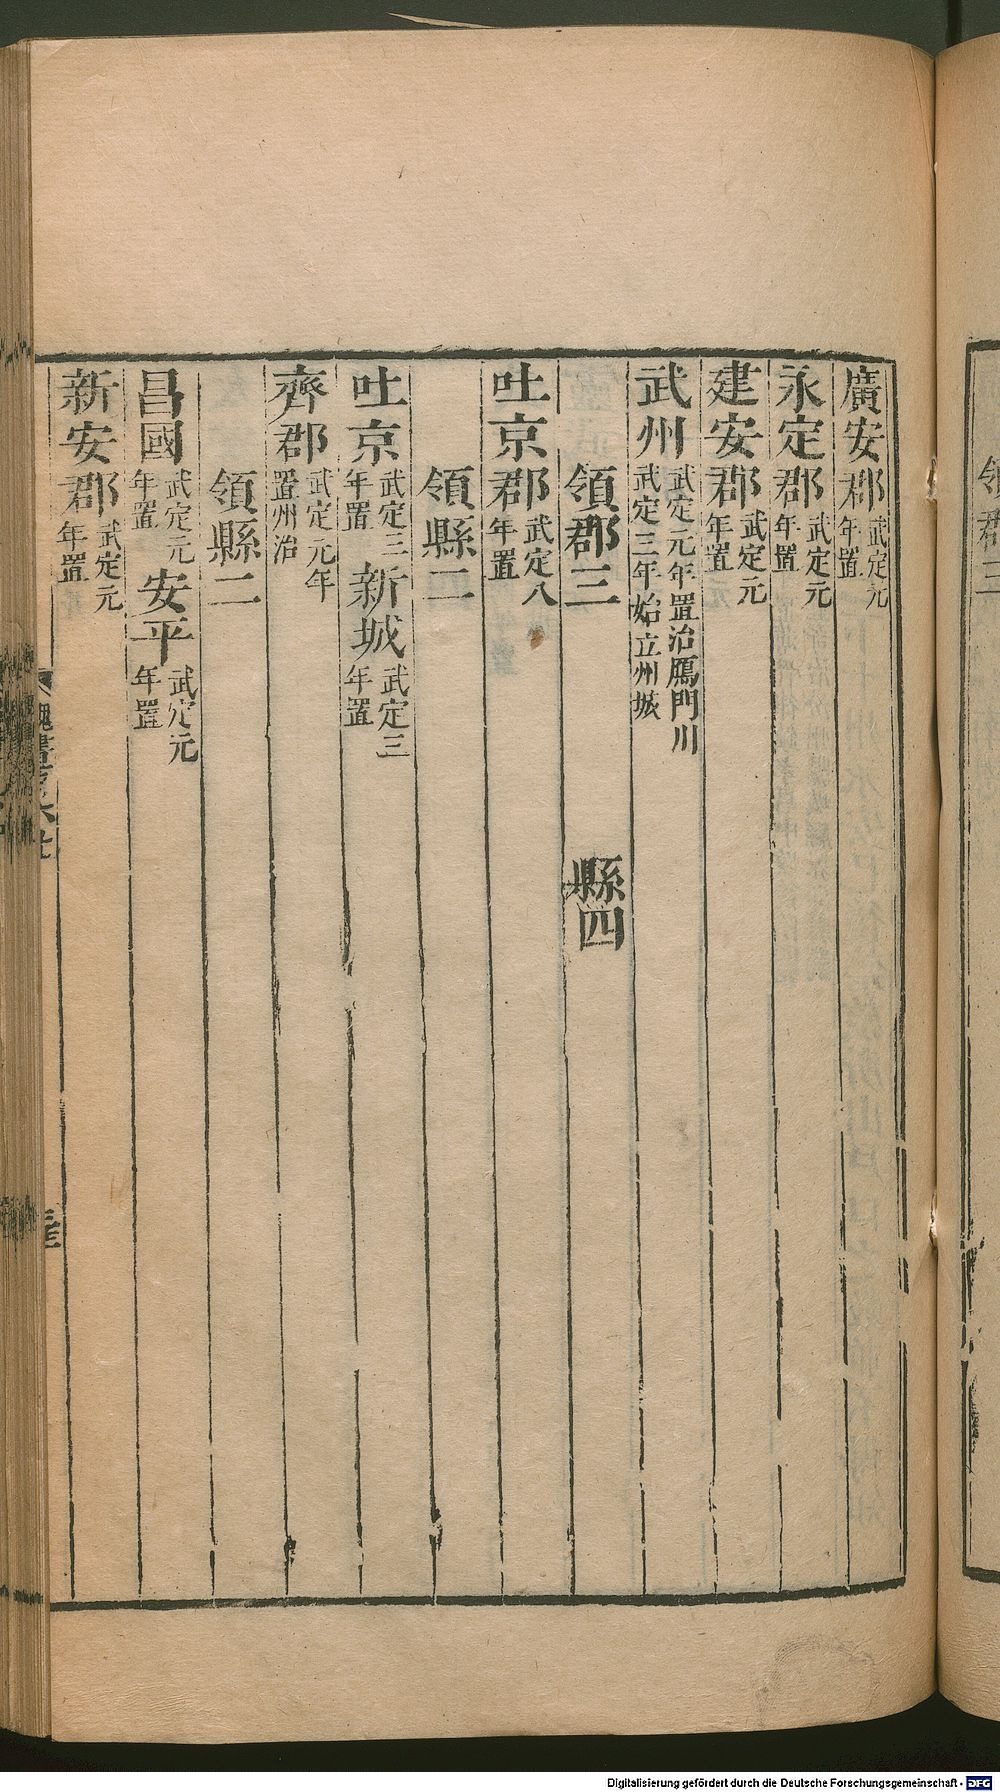 廣安郡武定元年置
永定郡武定元年置
建安郡武定元年置
武州武定元年置治鴈門川武定三年始立州城
領郡三 縣四
吐京郡武定八年置
領縣二
吐京武定三年置 新城武定三年置
齊郡武定元年置州治
領縣二
昌國武定元年置 安平武定元年置
新安郡武定元年置
魏書
領郡三
Digitalisierung gefördert durch die Deutsche Forschungsgemeinschaft - DFG